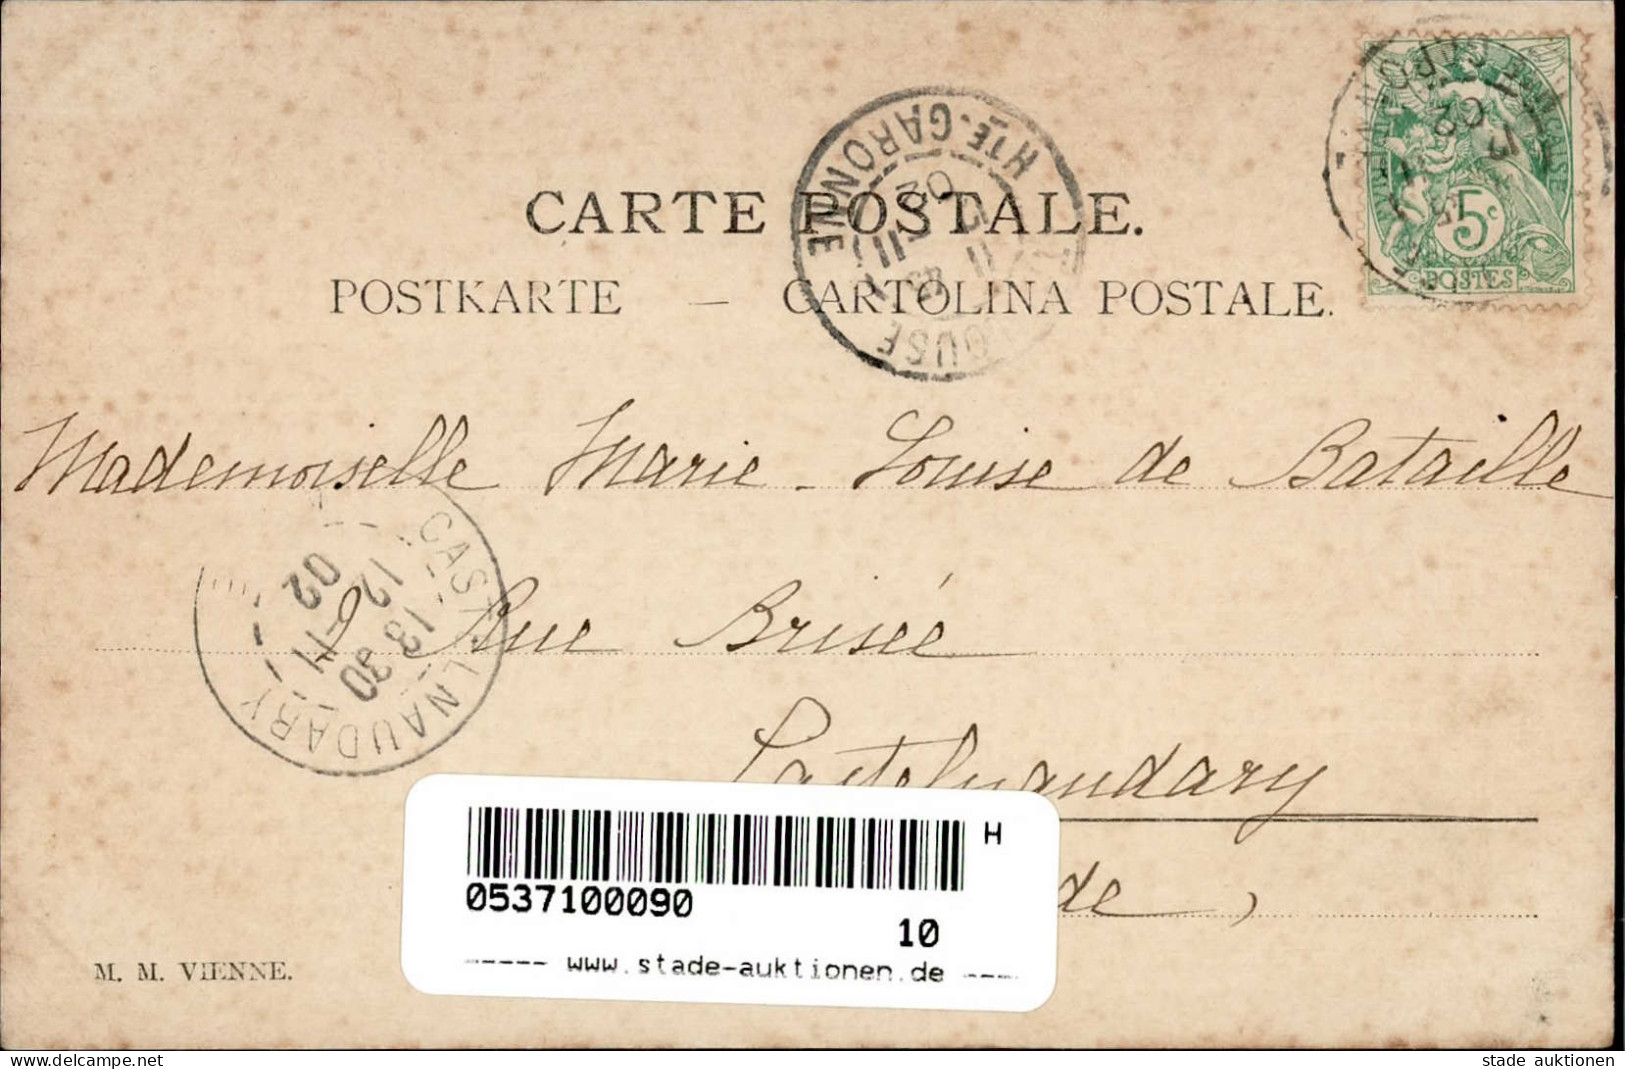 CARTE POSTALE.
POSTKARTE — CARTOLINA POSTALE.
HTE. GARONNE
02
5c
POSTES
Mademoiselle Marie-Louise de Bataille
9 Rue Brisée
Castelnaudary
de)
CASTELNAUDARY
13 30
12
-11
02
H
0537100090
10
----- www.stade-auktionen.de ----
M. M. VIENNE.
www.delcampe.net
stade auktionen